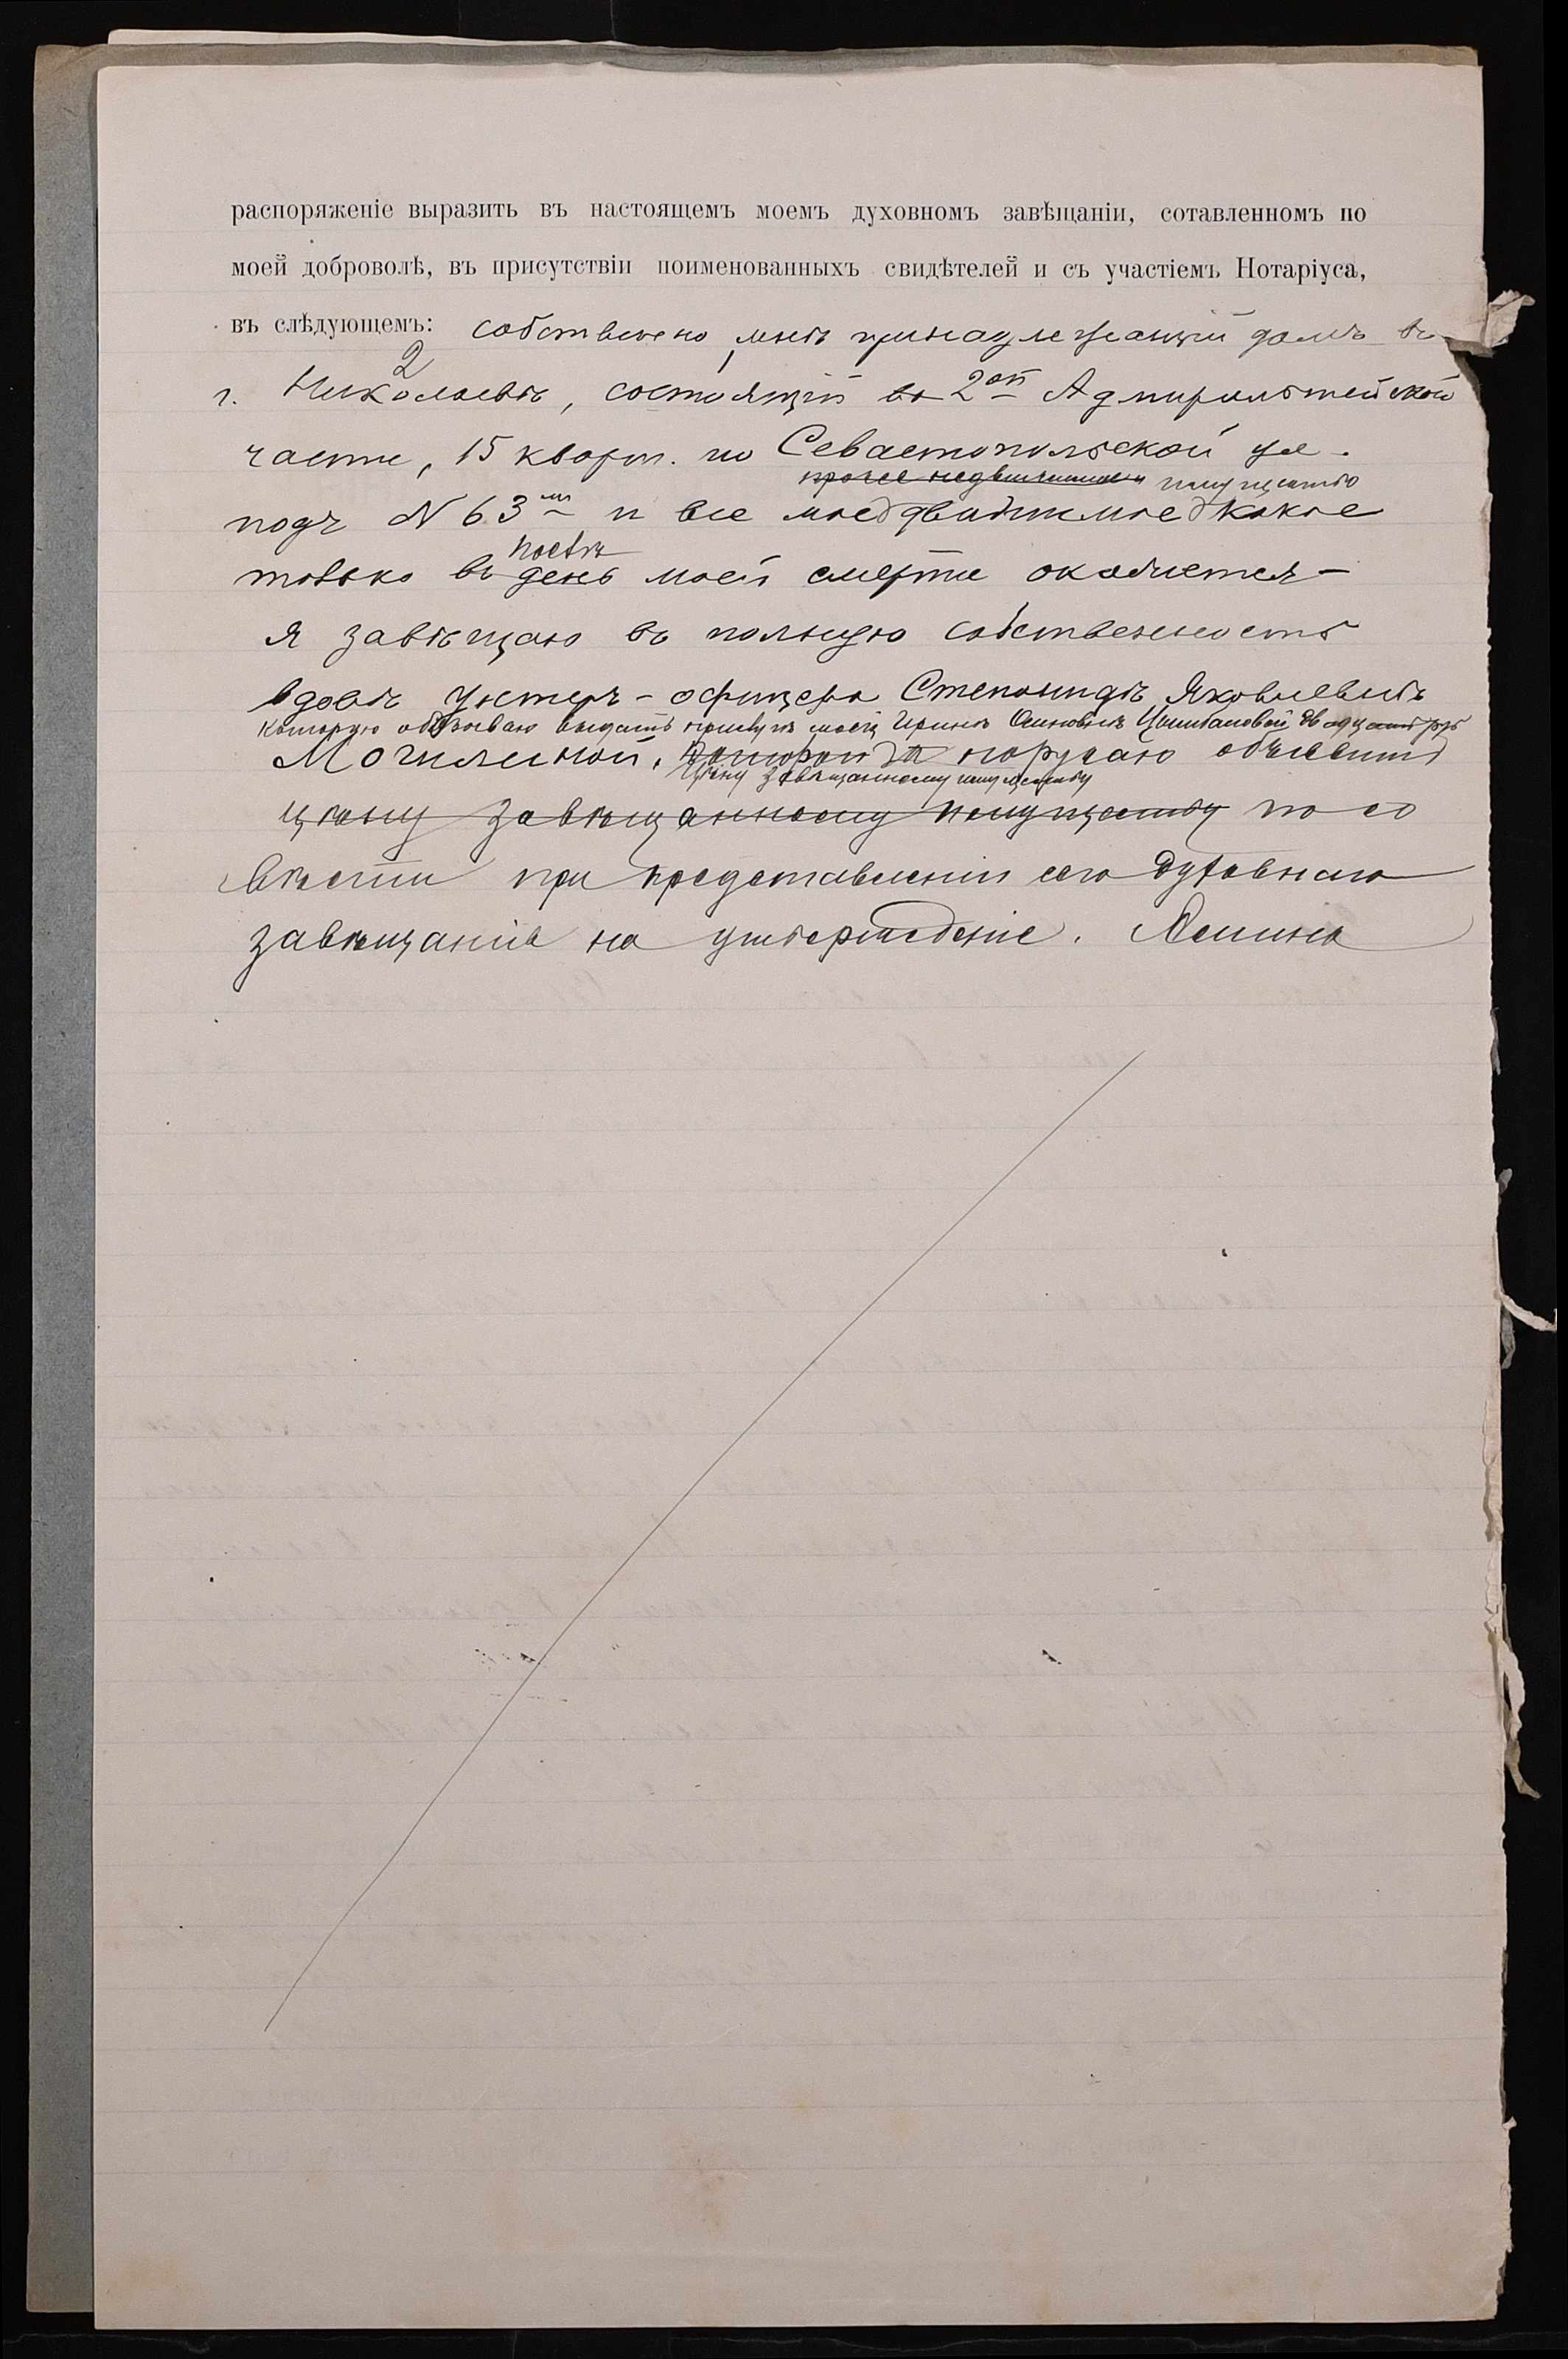 распоряженіе выразить въ настоящемъ моемъ духовномъ завѣщаніи, сотавленномъ по
моей доброволѣ, въ присутствіи поименованныхъ свидѣтелей и съ участіемъ Нотаріуса,
въ слѣдующемъ: собственно мнѣ принадлежащій домъ въ
2
г. Николаевѣ, состоящій во 2ой Адмиралтейской
части, 15 кварт. по Севастопольской ул.
прочее недвижимое имущество
подъ N 63мъ и все мое движимое какое
послѣ
только въ день моей смерти окажется
я завѣщаю въ полную собственность
вдовѣ унтеръ-офицера Степанидѣ Яковлевнѣ
которую обязываю выдать моей Иринѣ двадцать
Могилиной, которой поручаю объявить
цѣну завѣщанному имуществу
цѣну завѣщанному имуществу по со
вѣсти при представленіи сего духовнаго
завѣщанія на утвержденіе.